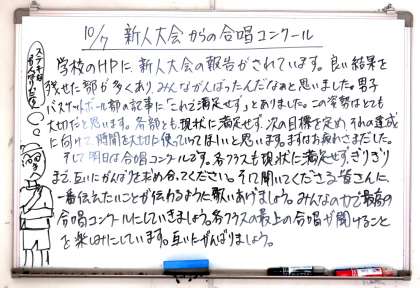 10/7 新人大会からの合唱コンクール
ステキな
学校のHPに、新人大会の報告がされています。良い結果を
残せた部が多くあり、みんながんばったんだなぁと思いました。男子
バスケットボール部の記事に「これで満足せず」とありました。この姿勢はとても
大切だと思います。各部とも、現状に満足せず、次の目標を定め、それの達成
に向けて、時間を大切に使っていってほしいと思います。まずはお疲れさまでした。
そして明日は合唱コンクールです。各クラスも現状に満足せず、ぎりぎり
まで、互いにがんばりを求め合ってください。そして聞いてくださる皆さんに、
一番伝えたいことが伝わるように歌いあげましょう。みんなの力で最高の
合唱コンクールにしていきましょう。各クラスの最上の合唱が聞けること
を楽しみにしています。互いにがんばりましょう。